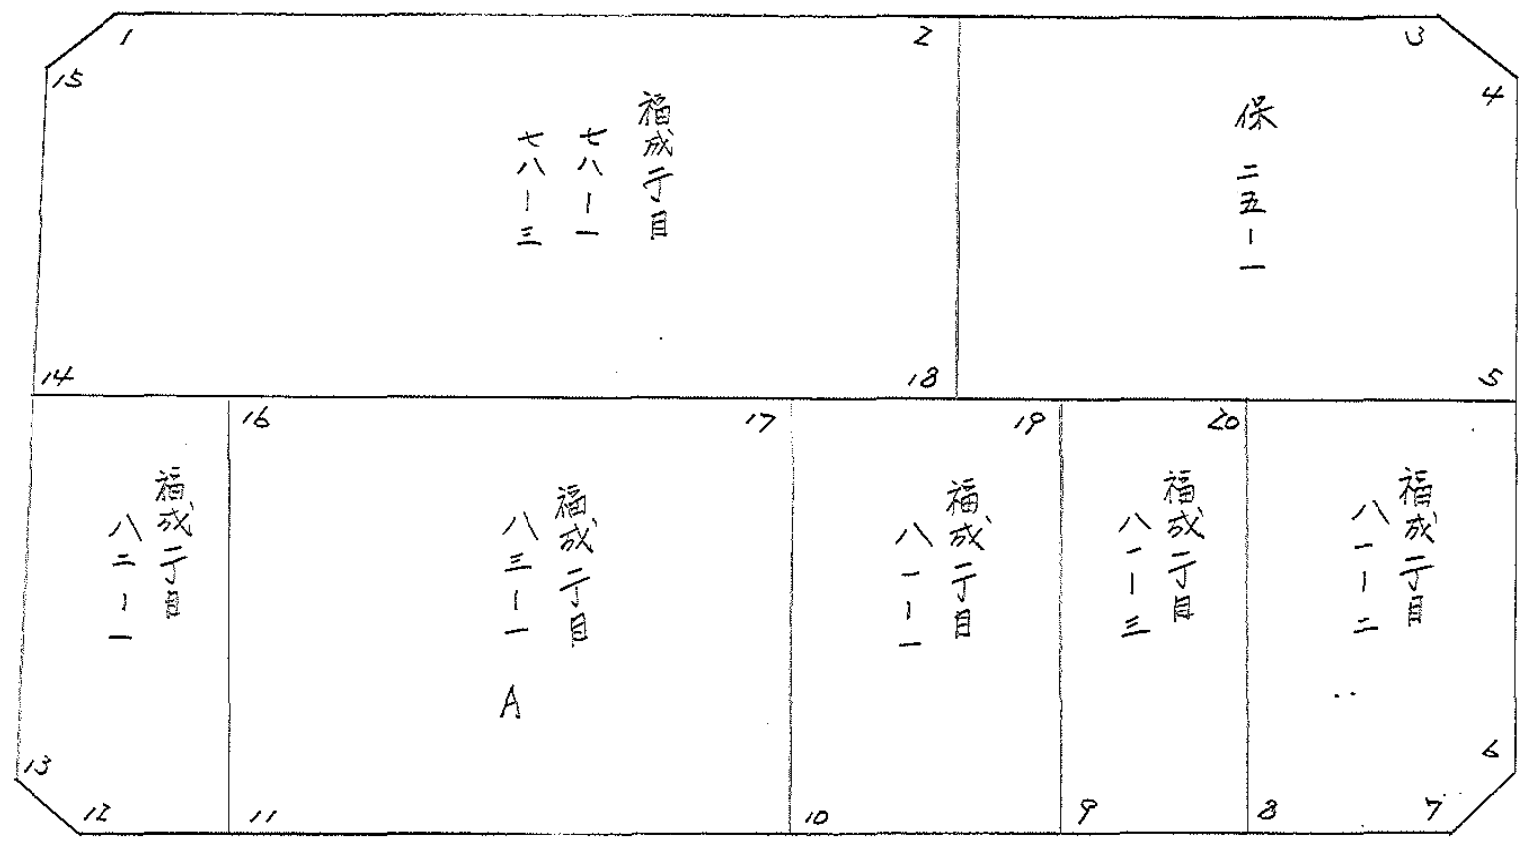 1
2
3
15
4
福成二丁目
七八ー一
七八ー三
保 二五ー一
14
18
5
16
17
19
20
福成二丁目
八二ー一
福成二丁目
八三ー一 A
福成二丁目
八一ー一
福成二丁目
八一ー三
福成二丁目
八一ー二
13
6
12
11
10
9
8
7